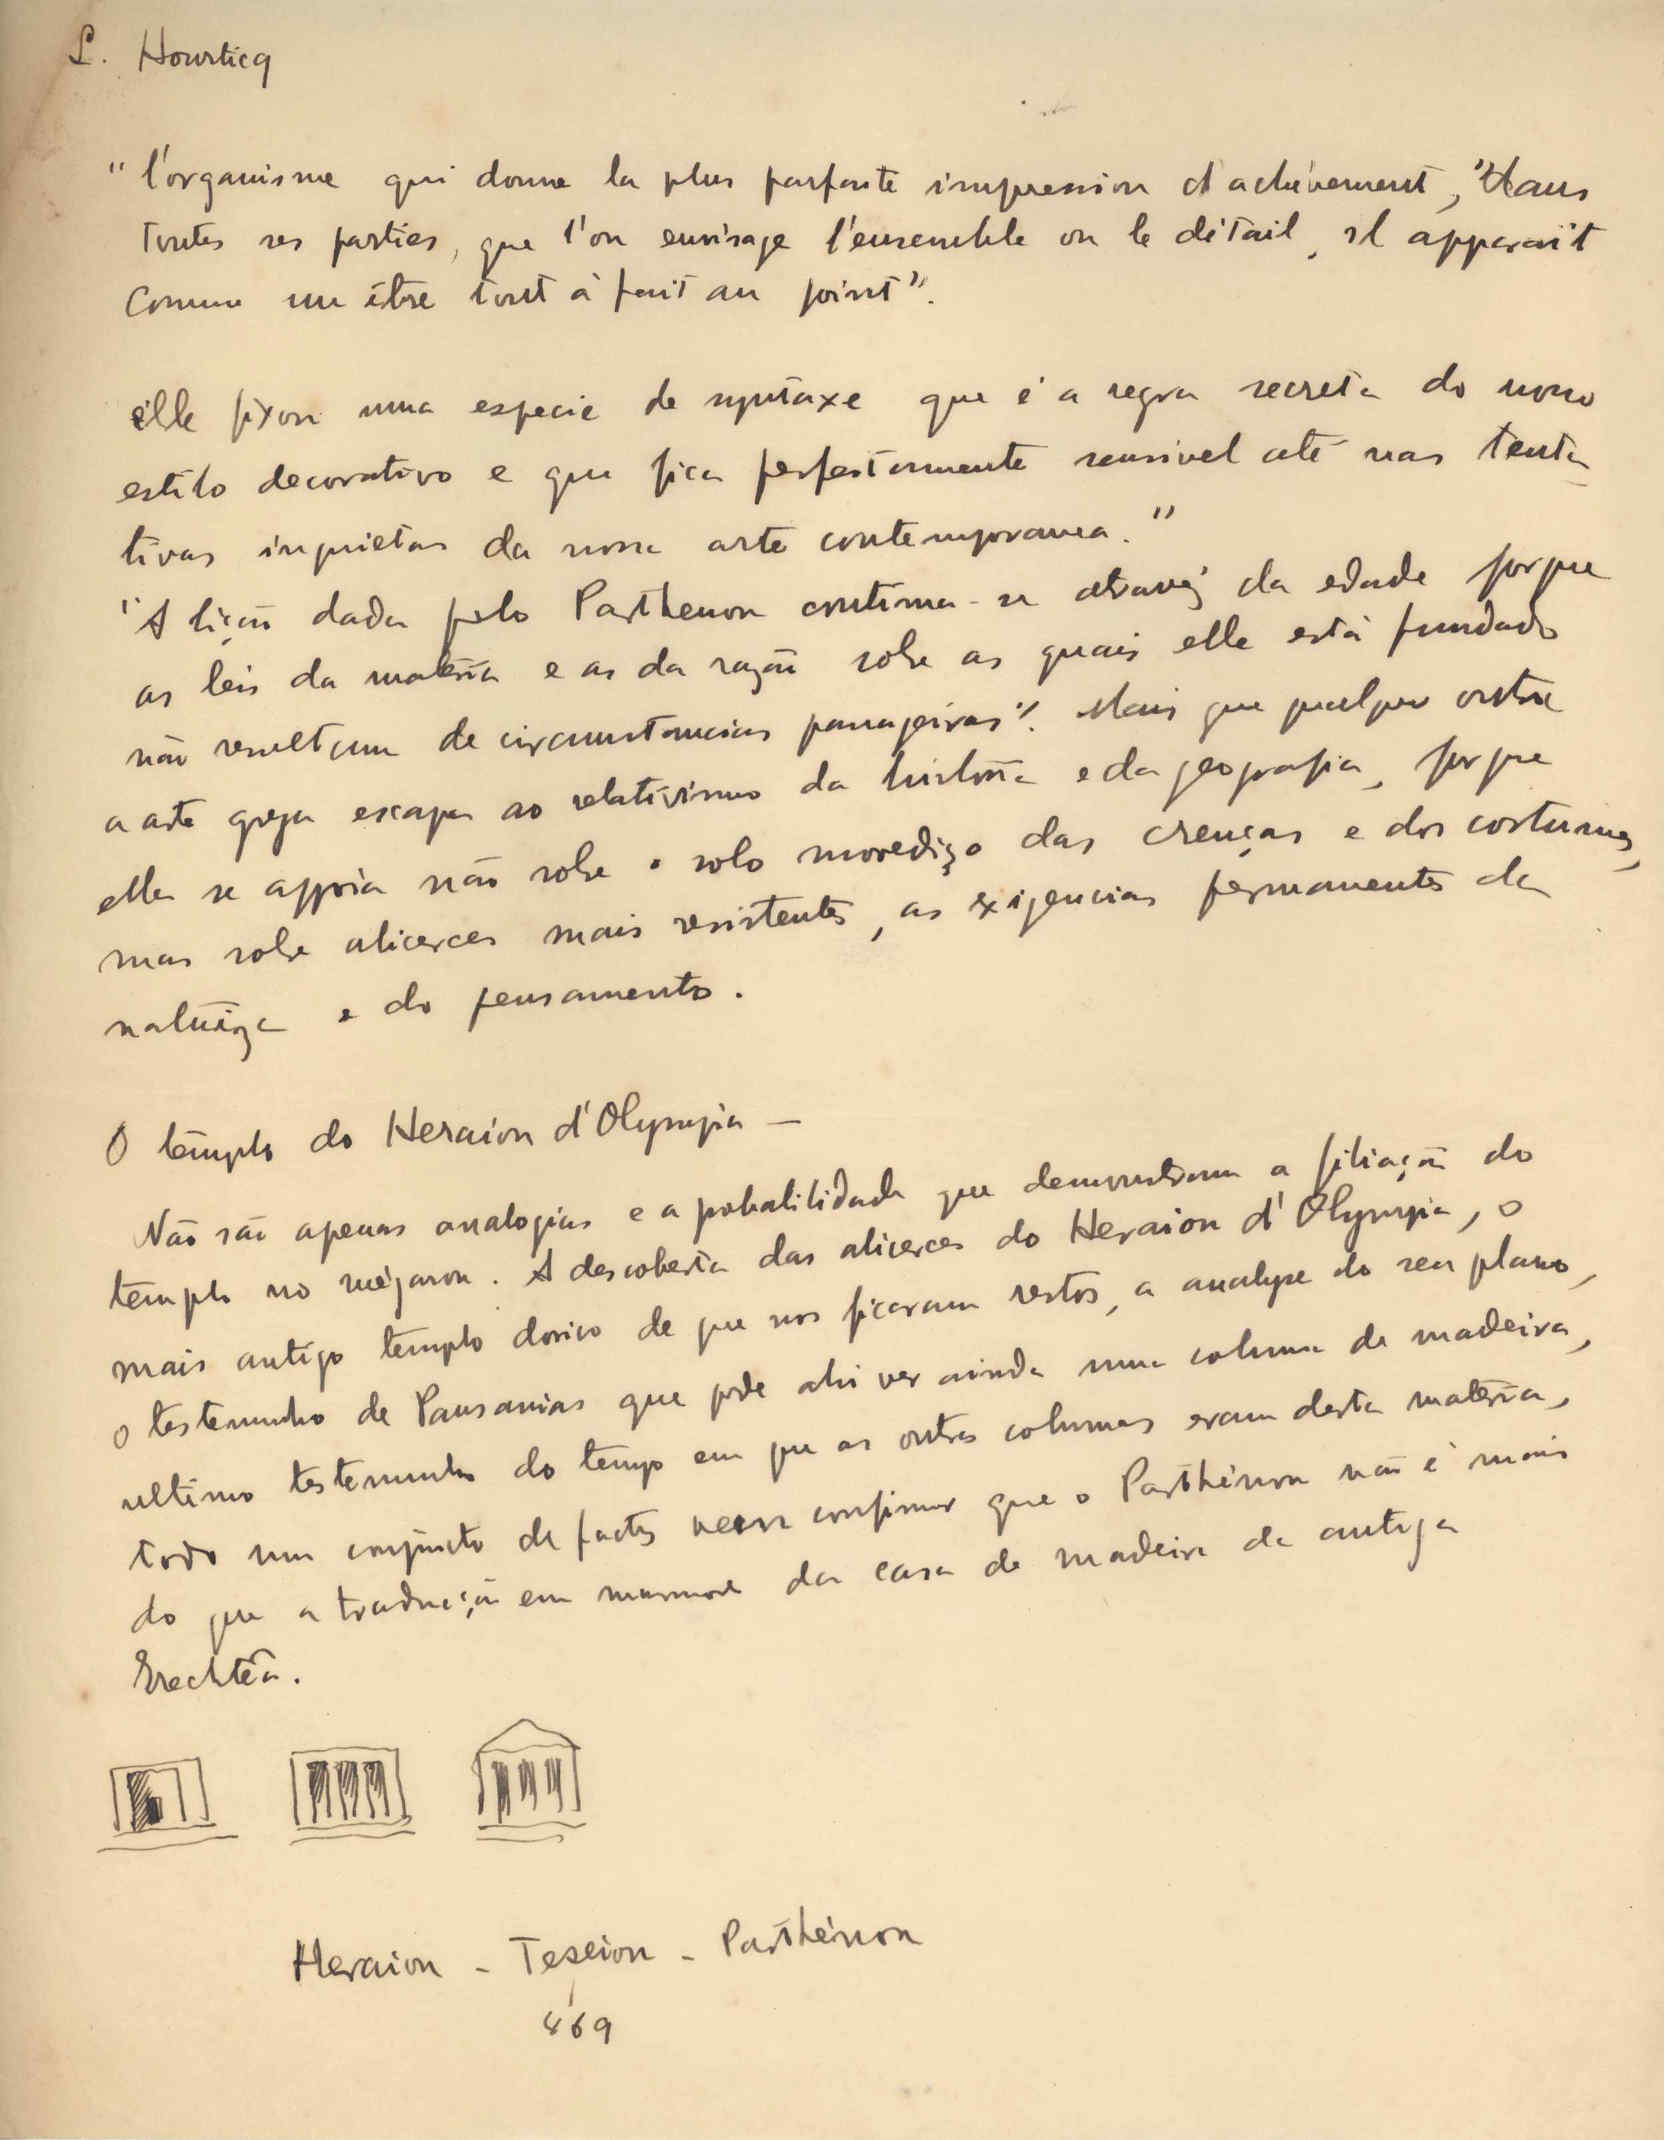 L. Hourticq
"l'organisme qui donne la plus parfaite impression d'achèvement, "dans
toutes ses parties, que l'on envisage l'ensemble ou le détail, il apparaît
comme un être tout à fait au point".
elle fixou uma especie de syntaxe que é a regra secreta do nosso
estilo decorativo e que fica perfeitamente sensivel até nas tenta-
tivas inquietas da nossa arte contemporanea."
"A lição dada pelo Parthenon continua-se através da edade porque
as leis da materia e as da razão sobre as quais elle está fundado
não resultam de circumstancias passageiras". Mais que qualquer outra
a arte grega escapa ao relativismo da historia e da geografia, porque
ella se appoia não sobre o solo movediço das crenças e dos costumes,
mas sobre alicerces mais resistentes, as exigencias permanentes da
natureza e do pensamento.
O templo do Heraion d'Olympia —
Não são apenas analogias e a probabilidade que demonstram a filiação do
templo no mégaron. A descoberta das alicerces do Heraion d'Olympia, o
mais antigo templo dorico de que nos ficaram restos, a analyse do seu plano,
o testemunho de Pausanias que pode ahi ver ainda uma columna de madeira,
ultimo testemunho do tempo em que as outras columnas eram desta materia,
todo um conjuncto de factos vem confirmar que o Parthénon não é mais
do que a traducção em marmore da casa de madeira de antiga
Erechtea.
Heraion - Teseion - Parthénon
469